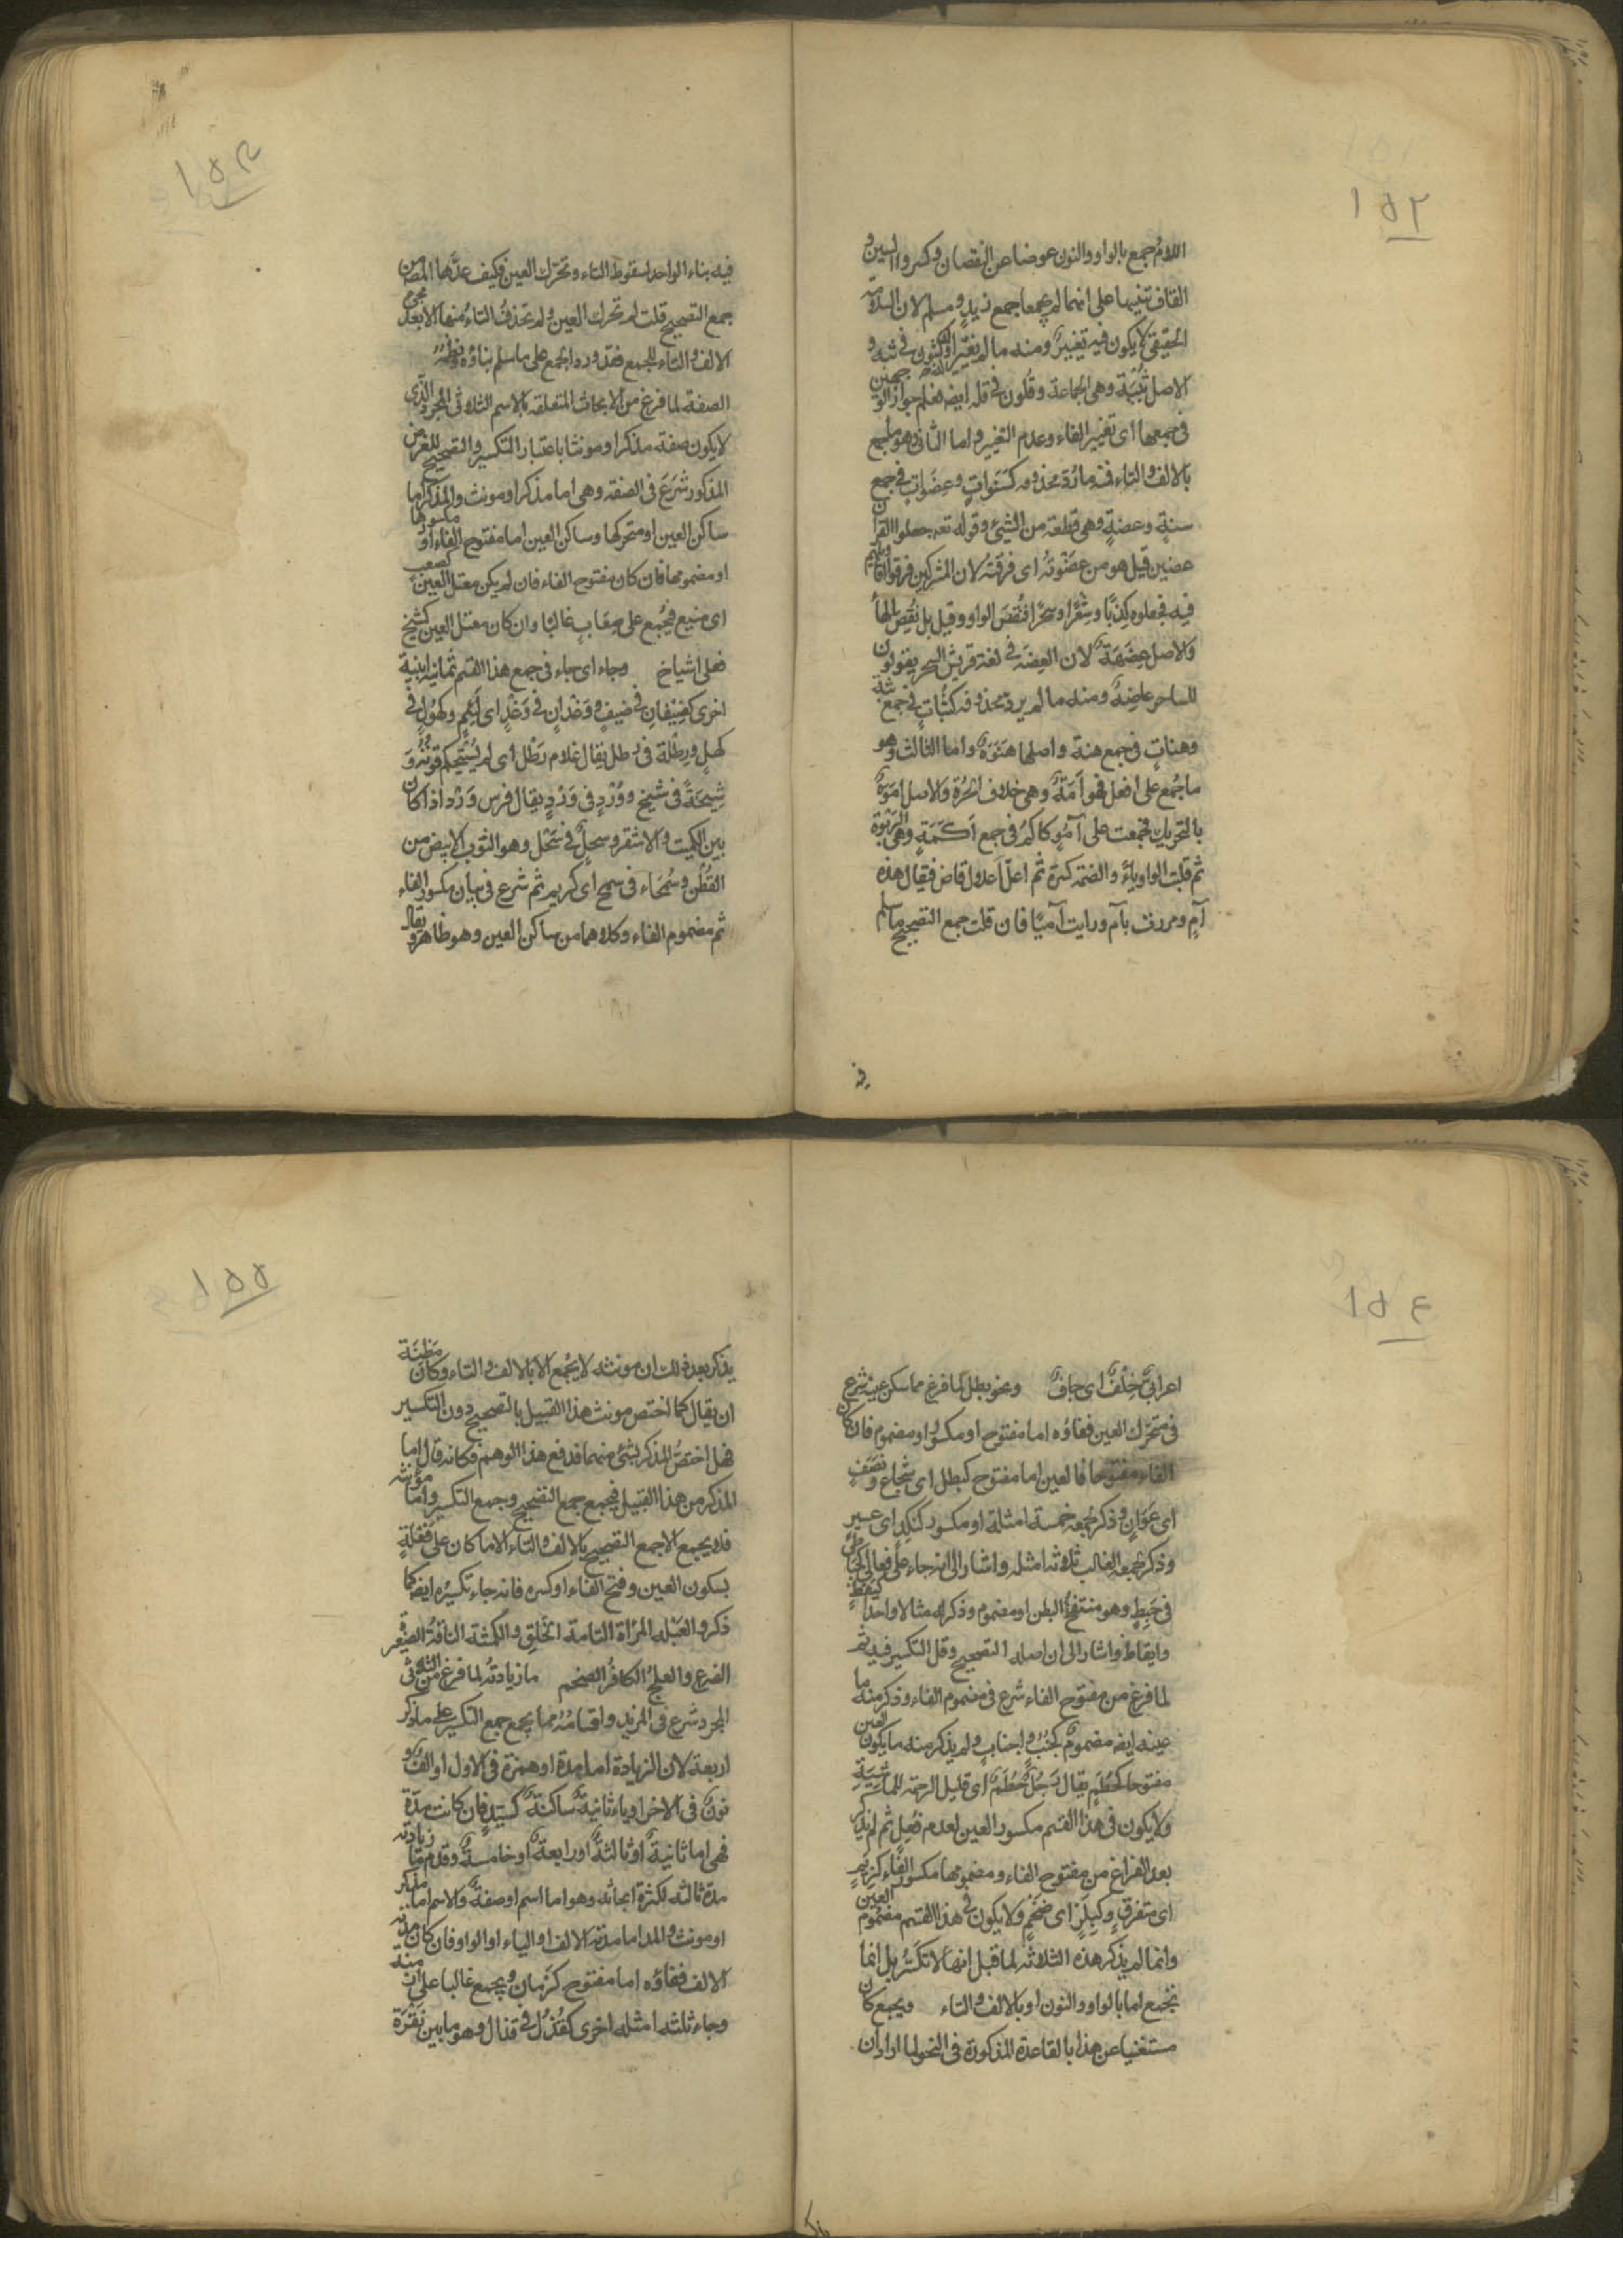 ١٥٢
اللام جمع بالواو والنون عوضا عن النقصان وكسروا السين و
القاف تنبيها على انهما لم يجمعا جمع زيد ومسلم لان السلامة
الحقيقى لا يكون فيه تغيير ومنه ما لم نغير اوله كثبون فى ثبة و
الاصل ثُبَيَة وهى الجماعة وقلون فى قلة ايضه فعلم جواز الوجهين
فى جمعها اى تغيير الفاء وعدم التغيير واما الثانى وهو ما يجمع
بالالف والتاء فمنه ما رُدّ محذوفه كسَنَواتٍ وعِضَواتٍ فى جمع
سنةٍ وعضةٍ وهى قطعة من الشيئ وقوله تعه جعلوا القرأن
عضين قيل هو من عضَوْتُه اى فرقتُه لان المشركين فرقوا اقاويلهم
فيه فجعلوه كِذبًا وشِعْرًا وسِحْرًا فنُقِصَ الواو وقيل بل نُقِصَ الهأُ
والاصل عِضَهَةٌ لان العِضَه فى لغة قريش السحر يقولون
للساحر عاضِهٌ ومنه ما لم يرد محذوفه كثُباتٍ فى جمع ثبةٍ
وهناتٍ فى جمع هنة واصلها هَنَوَةٌ واما الثالث وهو
ما جُمع على افعل فهو اَمَةٌ وهى خلاف الحُرة والاصل امَوَةٌ
بالتحريك فجمعت على آمُوٍ كاكم فى جمع اَكَمَةٍ وهى الرَبْوَة
ثم قلبت الواو ياءً والضمة كسرة ثم اعلّ اعلال قاض فقيل هذه
آمٍ ومررت بآمٍ ورايت آميًا فان قلت جمع التصحيح ما سلم
فيه
١٥٣
فيه بناء الواحد لسقوط التاء وتحرّك العين فكيف عدّها المص من
جمع التصحيح قلت لم تحرك العين ولم تحذف التاءُ منها الا بعد
الالف والتاء للجمع فقد ورد الجمع على ما سلم بناؤه
الصفة لما فرغ من الابحاث المتعلقة بالاسم الثلاثى المجرد الذى
لا يكون صفة مذكرا ومونثا باعتبار التكسير والتصحيح للغرض
المذكور شَرَعَ فى الصفة وهى اما مذكر او مونث والمذكر اما
ساكن العين او متحركها وساكن العين اما مفتوح الفاء او مكسورها
او مضمومها فان كان مفتوح الفاء فان لم يكن معتل العين كصعبٍ
اى منيع فيُجْمع على صِعَابٍ غالبًا وان كان معتل العين كشيخٍ
فعلى اشياخ وجاء اى جاء فى جمع هذا القسم ثمانية ابنية
اخرى كضِيْفانٍ فى ضيفٍ ووَغْدانٍ فى وَغْدٍ اى لئيم وكهُولٍ فى
كهلٍ ورِطَلَة فى رطل يقال غلام رَطْل اى لم يَسْتَحكِم قوته و
شِيخَةٌ فى شيخ ووُرْدٍ فى وَرْدٍ يقال فرس وَرْد اذا كان
بين الكميت والاشقر وسحلٌ فى سَحْل وهو الثوب الابيض من
القُطْن وسُمَحَاء فى سمح اى كريم ثم شرع فى بيان مكسور الفاء
ثم مضموم الفاء وكلاهما من ساكن العين وهو ظاهر ويقال
١٥٤
اعرابىٌّ جِلْفٌ اى جافٌ ونحو بطل لما فرغ مما سكن عينه شرع
فى متحرّك العين ففاؤه اما مفتوح او مكسور او مضموم فان كان
الفاء مفتوحا فالعين اما مفتوح كبطل اى شجاع ونَصَفٍ
اى عَوَانٍ وذكر لجمعه خمسة امثلة او مكسور كنَكِدٍ اى عسير
وذكر لجمعه الغالب ثلاثة امثله واشار الى انه جاء على فعالى كحَبَاطى
فى حَبِطٍ وهو منتفخُ البطن او مضموم وذكر له مثالا واحدا كيَقُظٍ
وايقاظ واشار الى ان اصله التصحيح وقل التكسير فيه ثم
لما فرغ من مفتوح الفاء شرع فى مضموم الفاء وذكر منه ما
عينه ايضه مضمومٌ كجُنُبٍ واجنابٍ ولم يذكر منه ما يكون العين
مفتوحا كحُطَمٍ يقال رَجُلٌ حُطَمٌ اى قليل الرحمة للماشيةِ
ولا يكون فى هذا القسم مكسور العين لعدم فُعِلٍ ثم لم يذكر
بعد الفراغ من مفتوح الفاء ومضمومها مكسور الفاء كزِيَمٍ
اى متفرقٍ وكبِلِزٍ اى ضخمٍ ولا يكون فى هذا القسم مضموم العين
وانما لم يذكر هذه الثلاثة لما قيل انها لا تكَسَّرُ بل انما
تجمع اما بالواو والنون او بالالف والتاء ويجمع كان
مستغنيا عن هذا بالقاعدة المذكورة فى النحو لما اراد ان
١٥٥
يذكر بعد ذلك ان مونثه لا يُجْمع الا بالالف والتاء وكان مَظِنّة
ان يقال كما اختص مونث هذا القبيل بالتصحيح دون التكسير
فهل اختصُّ المذكر بشئ منهما فدفع هذا الوهم فكانه قال اما
المذكر من هذا القبيل فيجمع جمع التصحيح وجمع التكسير واما مؤنثه
فلا يجمع الا جمع التصحيح بالالف والتاء الا ما كان على فَعْلَةٍ
بسكون العين وفتح الفاء او كسره فانه جاء تكسيرُه ايضه كما
ذكر والعَبْلة المرأة التامة الخَلقِ والكمشة الناقةُ الصغيرة
الضرع والعلج الكافرُ الضخم ما زيادتُه لما فرغ من الثلاثى
المجرد شرع فى المزيد واقسامُه مما يجمع جمع التكسير على ما ذكر
اربعة لان الزيادة اما مدة او همزة فى الاول او الفٌ و
نونٌ فى الاخر او ياء ثانيةٌ ساكنةٌ كسَيّدٍ فان كانت مدّة
فهى اما ثانيةٌ او ثالثةٌ او رابعةٌ او خامسةٌ وقدم ما زيادته
مدة ثالثه لكثرة ابحاثه وهو اما اسم او صفةٌ والاسم اما مذكر
او مونث والمذ اما مدته الالف او الياء او الواو فان كان مدته
الالف ففاؤه اما مفتوح كزَمانٍ ويجمع غالبا على ازمنة
وجاء ثلثه امثله اخرى كقُذُلٍ فى قذال وهو ما بين نَقْرَة